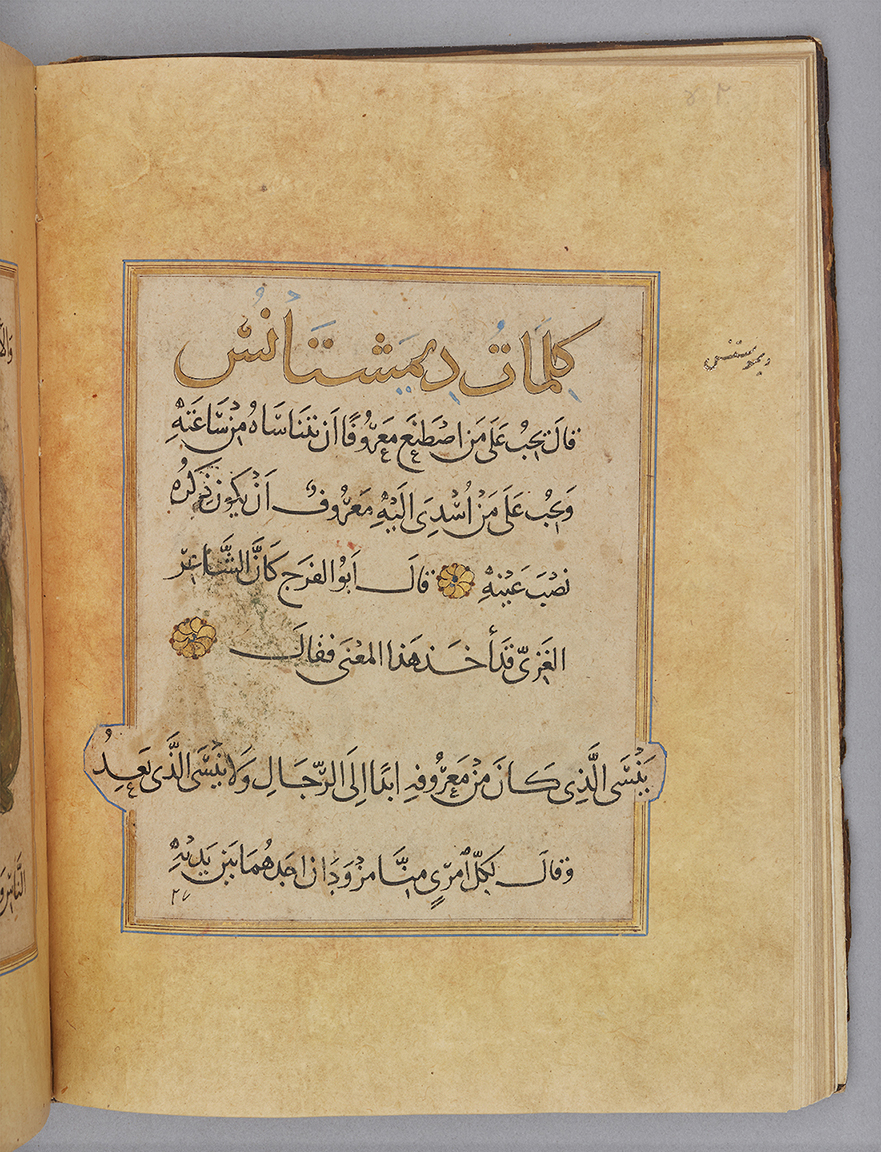 كلمات ديمشتانس
قال يجب على من اصطنع معروفا ان يتناساه من ساعته
ويجب على من أسدى اليه معروف ان يكون ذكره
نصب عينه قال ابو الفرج كان الشاعر
الغزى قد أخذ هذا المعنى فقال
ينسى الذى كان من معروفه ابدا إلى الرجال ولا ينسى الذى يعد
وقال لكل أمرئ منا مزودان احدهما بين يديه
٢٧